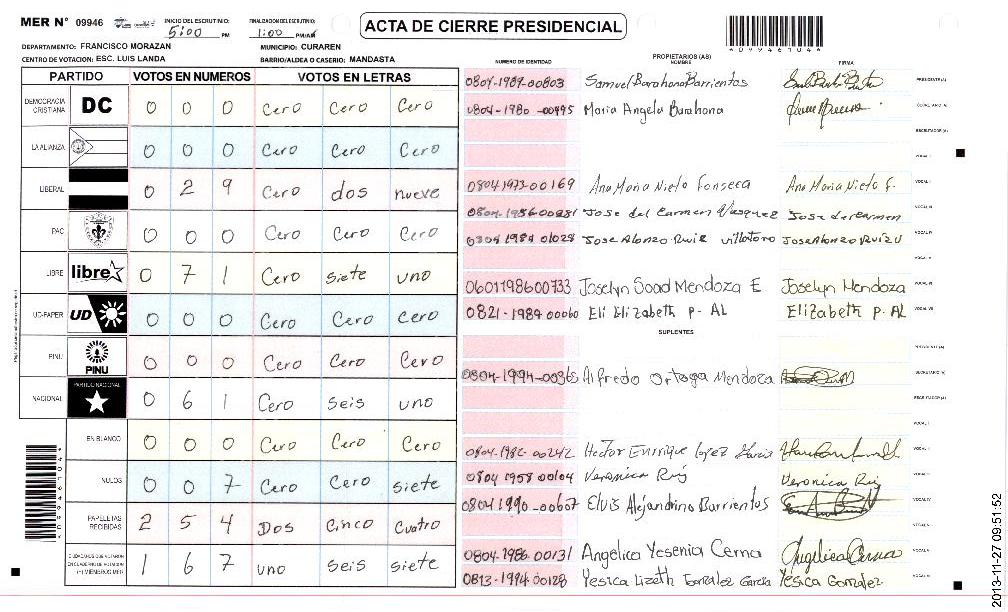 MER N° 09946
INICIO DEL ESCRUTINIO: 5:00 PM
FINALIZACION DEL ESCRUTINIO: 1:00 PM/AM
ACTA DE CIERRE PRESIDENCIAL
DEPARTAMENTO: FRANCISCO MORAZAN
MUNICIPIO: CURAREN
CENTRO DE VOTACION: ESC. LUIS LANDA
BARRIO/ALDEA O CASERIO: MANDASTA
PARTIDO VOTOS EN NUMEROS VOTOS EN LETRAS
DEMOCRACIA CRISTIANA DC 0 0 0 Cero Cero Cero
LA ALIANZA 0 0 0 Cero Cero Cero
LIBERAL 0 2 9 Cero dos nueve
PAC 0 0 0 Cero Cero Cero
LIBRE libre 0 7 1 Cero siete uno
UD-FAPER UD 0 0 0 Cero Cero Cero
PINU PINU 0 0 0 Cero Cero Cero
NACIONAL PARTIDO NACIONAL 0 6 1 Cero seis uno
EN BLANCO 0 0 0 Cero Cero Cero
NULOS 0 0 7 Cero Cero siete
PAPELETAS RECIBIDAS 2 5 4 Dos Cinco Cuatro
CIUDADANOS QUE VOTARON EN CUADERNO DE VOTACION (+) MIEMBROS MER 1 6 7 uno seis siete
NUMERO DE IDENTIDAD PROPIETARIOS (AS) NOMBRE FIRMA
0804-1989-00803 Samuel Barahona Barrientos PRESIDENTE (A)
0804-1980-00495 Maria Angela Barahona SECRETARIO (A)
ESCRUTADOR (A)
VOCAL I
0804 1973-00169 Ana Maria Nieto Fonseca Ana Maria Nieto F.
Jose del Carmen Vasquez Jose del Carmen
0804 1984 01028 Jose Alonzo Ruiz Villatoro Jose Alonzo Ruiz V
0601198600733 Joselyn Soad Mendoza E Joselyn Mendoza
0821-1984 00060 Eli Elizabeth P. AL Elizabeth P. AL
SUPLENTES
PRESIDENTE (A)
0804-1994-00365 Alfredo Ortega Mendoza SECRETARIO (A)
ESCRUTADOR (A)
0804-1982-00242 Hector Enrrique Lopez Garcia
0804 1958 00104 Veronica Ruiz Veronica Ruiz
0804 1990-00607 Elvis Alejandrino Barrientos
0804-1986 00131 Angelica Yesenia Cerna Angelica Cerna
0813-1994 00128 Yesica Lizeth Gonzalez Garcia Yesica Gonzalez
2013-11-27 09:51:52